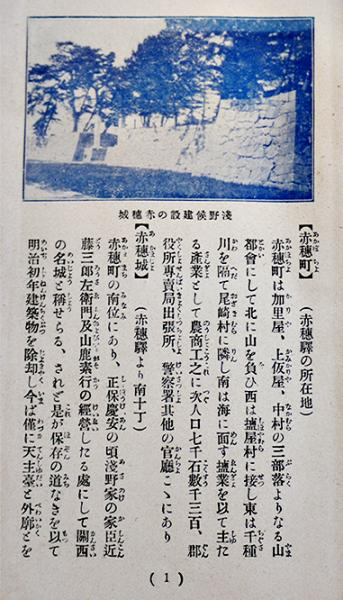 淺野候建設の赤穗城
【赤穗町】　（赤穗驛の所在地）
赤穗町は加里屋、上仮屋、中村の三部落よりなる山
都會にして北に山を負ひ西は攎屋村に接し東は千種
川を隔て尾崎村に隣し南は海に面す攎業を以て主た
る產業として農商工之に次人口七千石數千三百、郡
役所專賣局出張所、警察署其他の官廳こゝにあり
【赤穗城】　（赤穗驛より南十丁）
赤穗町の南位にあり、正保慶安の頃淺野家の家臣近
藤三郎左衛門及山鹿素行の經營したる處にして關西
の名城と稱せらる、されど是が保存の道なきを以て
明治初年建築物を除却し今ば僅に天主臺と外廓とを
(1)